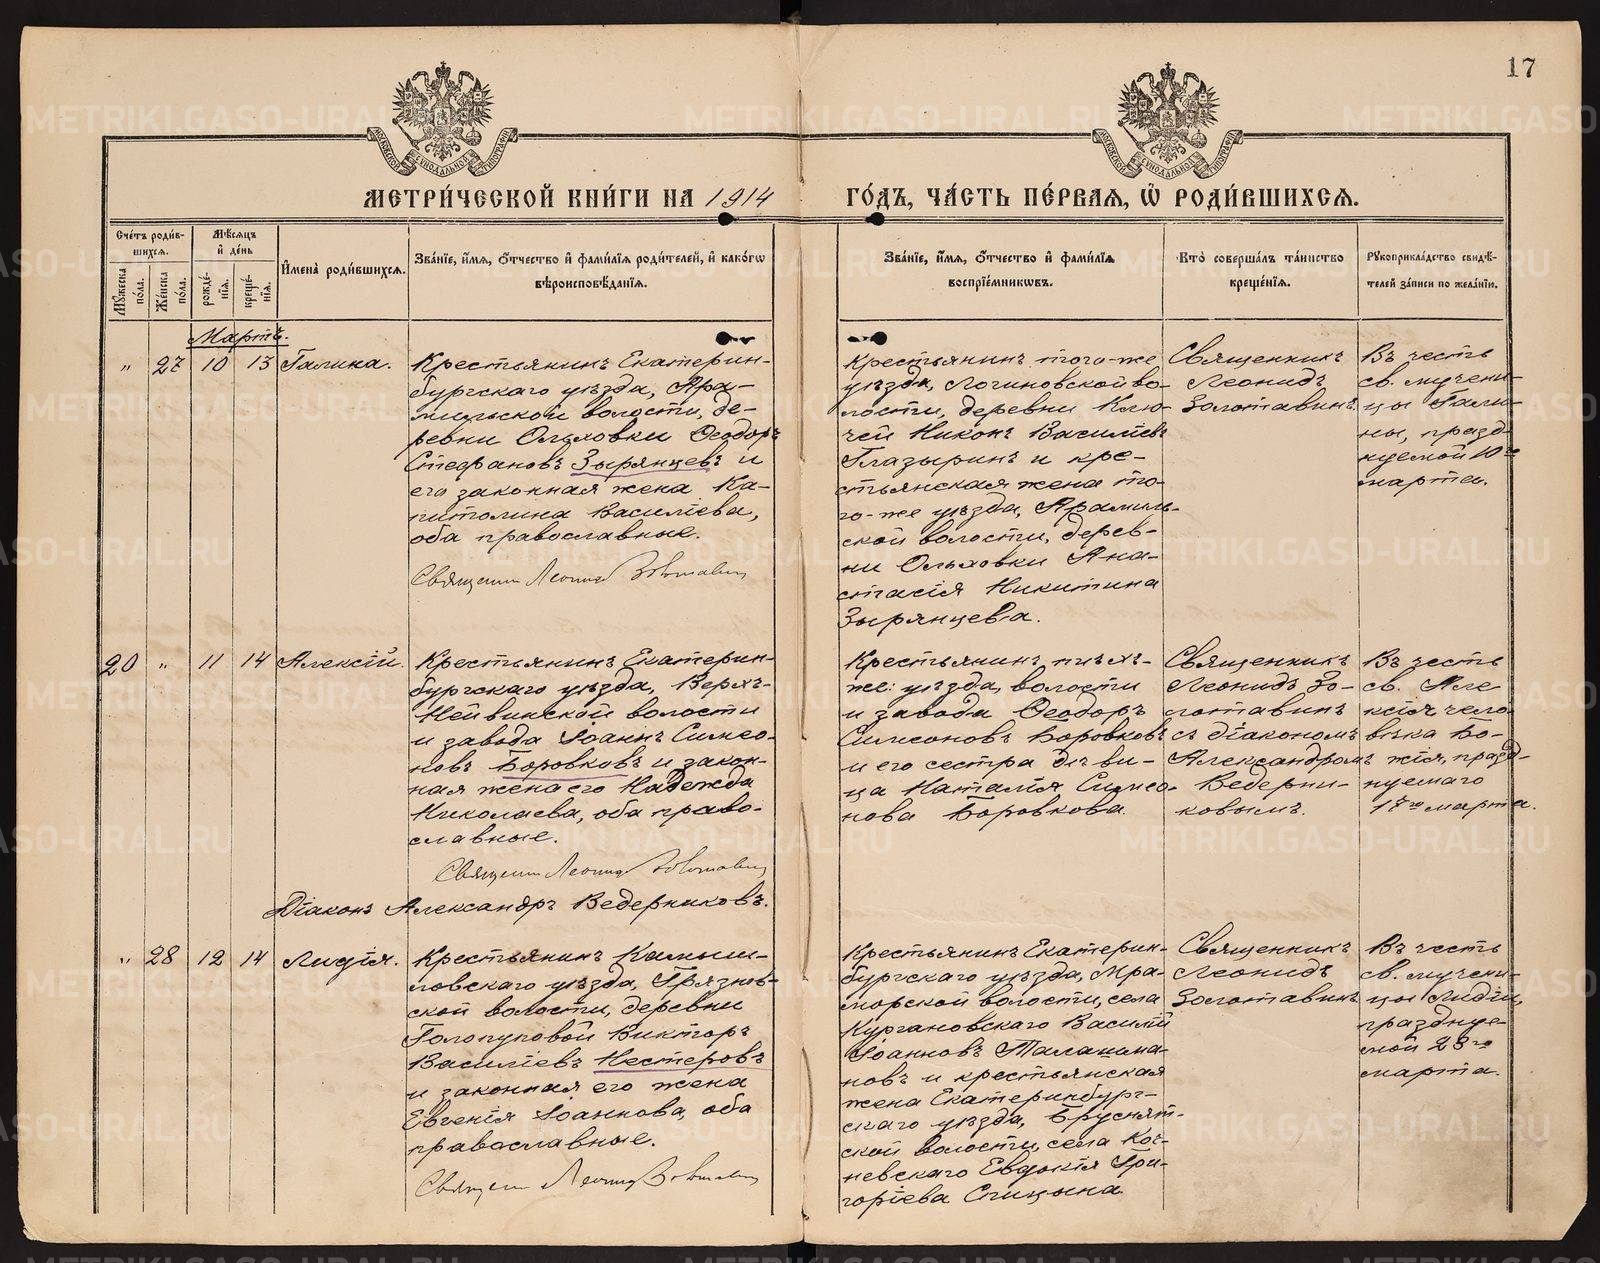 17
МЕТРИ́ЧЕСКОЙ КНИ́ГИ НА 1914 ГО́ДЪ, ЧА́СТЬ ПЕ́РВАЯ, Ѡ҆ РОДИ́ВШИХСЯ.
Сче́тъ роди́в-
шихся.
Му́жеска по́ла.
Же́нска по́ла.
Мѣ́сяцъ и҆ де́нь
рожде́-
нїя.
креще́-
нїя.
И҆мена̀ роди́вшихся.
Зва́нїе, и҆́мя, ѻ҆́тчество и҆ фами́лїя роди́телей, и҆ како́гѡ
вѣроисповѣ́данїя.
Зва́нїе, и҆́мя, ѻ҆́тчество и҆ фами́лїя
воспрїе́мникѡвъ.
Кто̀ соверша́лъ та́инство
креще́нїя.
Рукоприкла́дство свидѣ́-
телей за́писи по жела́нїю.
Мартъ.
" 27 10 13 Галина.
Крестьянинъ Екатерин-
бургскаго уѣзда, Ара-
мильской волости, де-
ревни Ольховки Ѳеодоръ
Стефановъ Зырянцевъ и
его законная жена Ка-
питолина Василіева,
оба православные.
Священ. Леонид Золотавин
Крестьянинъ того-же
уѣзда, Логиновской во-
лости, деревни Клю-
чей Никонъ Василіевъ
Глазыринъ и кре-
стьянская жена то-
го-же уѣзда, Арамиль-
ской волости, дерев-
ни Ольховки Ана-
стасія Никитина
Зырянцева.
Священникъ
Леонидъ
Золотавинъ.
Въ честь
св. мучени-
цы Гали-
ны, празд-
нуемой 10го
марта.
20 " 11 14 Алексій.
Крестьянинъ Екатерин-
бургскаго уѣзда, Верхъ-
Нейвинской волости
и завода Іоаннъ Симео-
новъ Боровковъ и закон-
ная жена его Надежда
Николаева, оба право-
славные.
Священ. Леонид Золотавин
Діаконъ Александръ Ведерниковъ.
Крестьянинъ тѣхъ-
же: уѣзда, волости
и завода Ѳеодоръ
Симеоновъ Боровковъ
и его сестра дѣви-
ца Наталія Симео-
нова Боровкова.
Священникъ
Леонидъ Зо-
лотавинъ
съ діакономъ
Александромъ
Ведерни-
ковымъ.
Въ честь
св. Але-
ксія чело-
вѣка Бо-
жія, празд-
нуемаго
17го марта.
" 28 12 14 Лидія.
Крестьянинъ Камыш-
ловскаго уѣзда, Грязнов-
ской волости, деревни
Голопуповой Викторъ
Василіевъ Нестеровъ
и законная его жена
Евгенія Іоаннова, оба
православные.
Священ. Леонид Золотавин
Крестьянинъ Екатерин-
бургскаго уѣзда, Мра-
морской волости, села
Кургановскаго Василій
Іоанновъ Талашма-
новъ и крестьянская
жена Екатеринбург-
скаго уѣзда, Бруснят-
ской волости, села Коч-
невскаго Евдокія Гри-
горіева Спицына.
Священникъ
Леонидъ
Золотавинъ
Въ честь
св. мучени-
цы Лидіи,
празднуе-
мой 23го
марта.